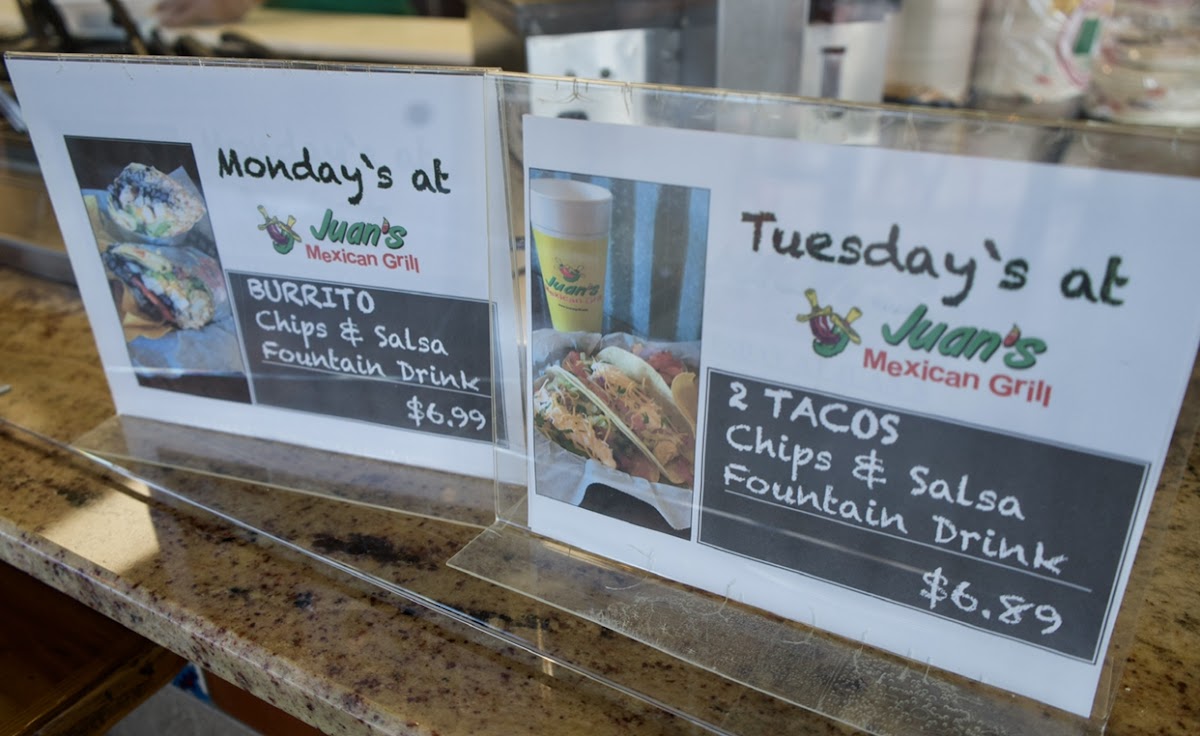 Monday`s at
Juan's
Mexican Grill
BURRITO
Chips & Salsa
Fountain Drink
$6.99
Juan's
Mexican Grill
Tuesday`s at
Juan's
Mexican Grill
2 TACOS
Chips & Salsa
Fountain Drink
$6.89